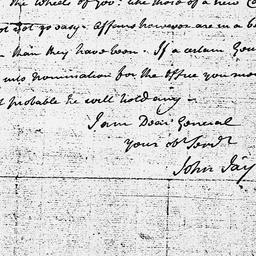 the Wheels of Gov: like those of a new
not yet go easy. Affairs however are in a
than they have been. If a certain Gen
into nomination for the office you
probable he will hold any.
I am Dear General
your obt Servt
John Jay